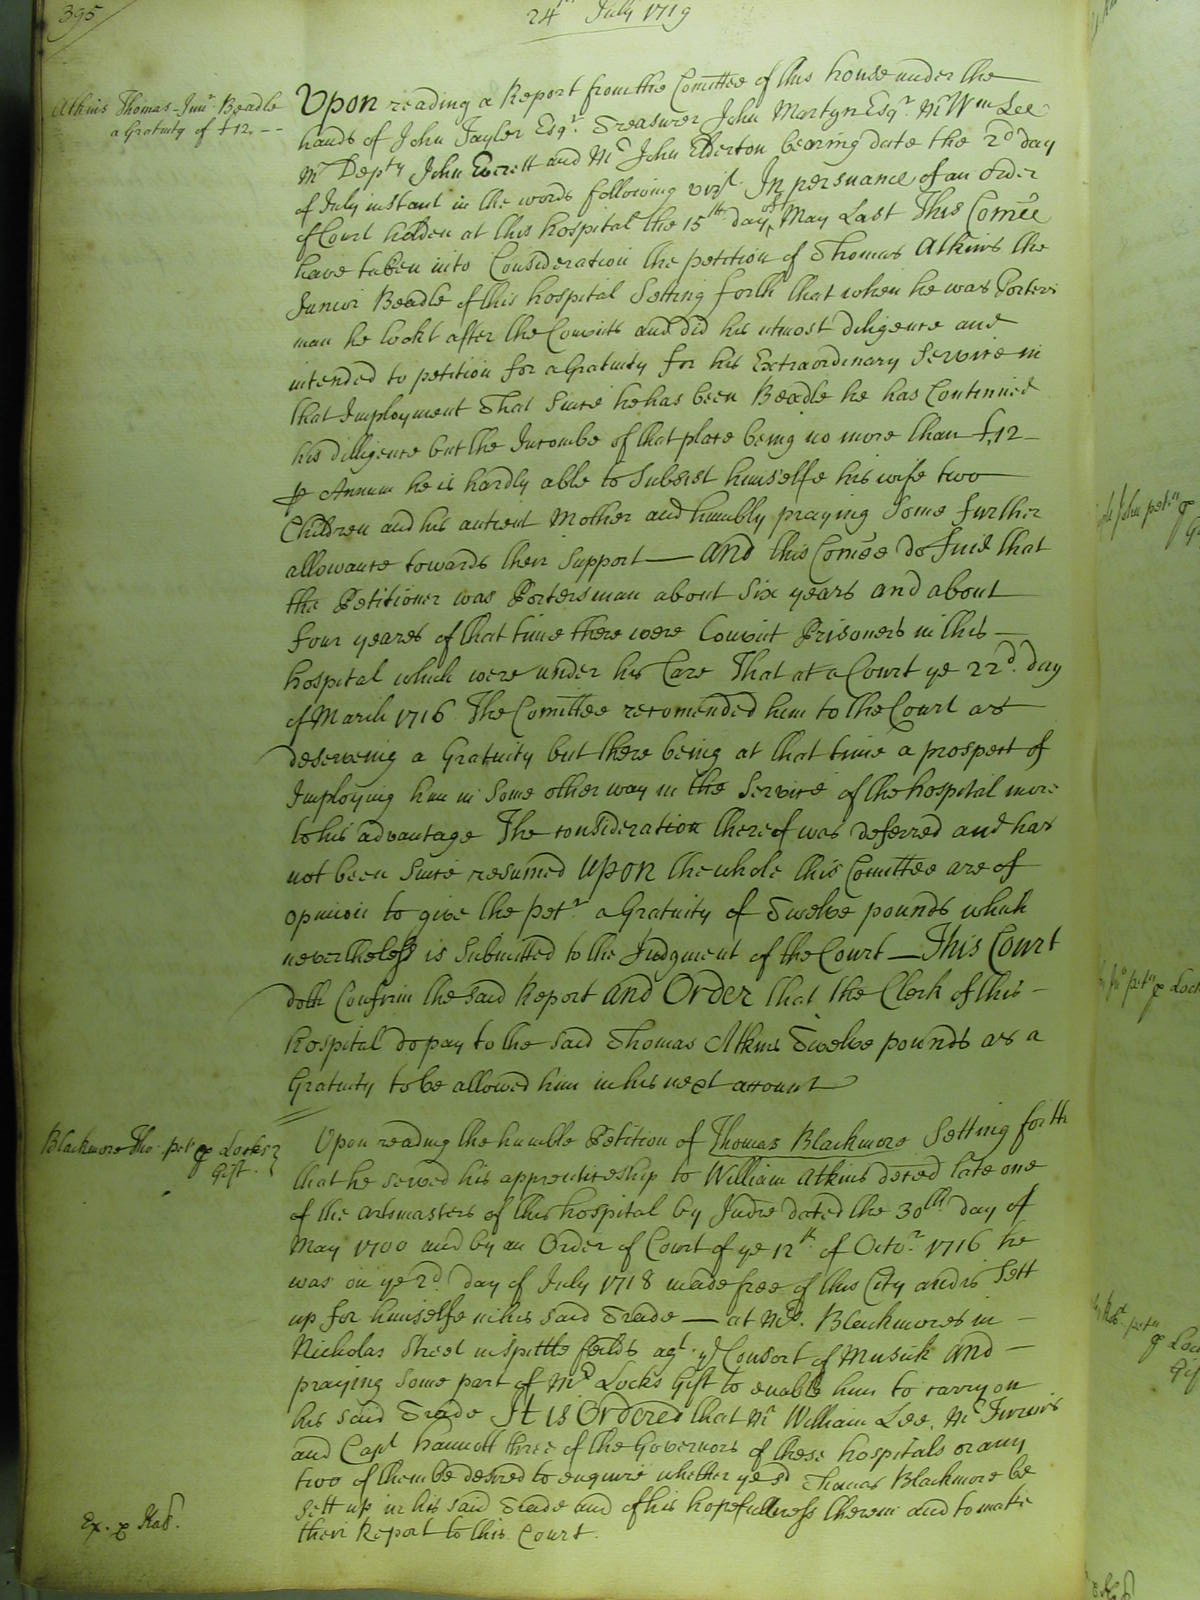 395
24th July 1719
Atkins Thomas Junr. Beadle
a Gratuity of £12. --
Upon reading a Report from the Comittee of this house under the
hands of John Tayler Esqr. Treasurer John Martyn Esqr. Mr Wm Lee
Mr Depty John Everett and Mr John Elderton bearing date the 2d day
of July instant in the words following vizt. In persuance of an order
of Court holden at this hospital the 15th day of May Last This Comee
have taken into Consideration the petition of Thomas Atkins the
Junior Beadle of this hospital Setting forth that when he was Porters
man he lookt after the Convicts and did his utmost diligence and
intended to petition for a Gratuity for his Extraordinary Service in
that Imployment That Since he has been Beadle he has Continued
his dilligence but the Incombe of that place being no more than £12 -
P Annum he is hardly able to Subsist himselfe his wife two
Children and his antient Mother and humbly praying Some further
allowance towards their Support — And this Comee do find that
the Petitioner was Portersman about Six years and about
four yeares of that time there were Convict Prisoners in this —
hospital which were under his Care That at a Court ye 22d. day
of March 1716 The Comittee recomended him to the Court as
deserveing a Gratuity but there being at that time a prospect of
Imploying him in Some other way in the Service of the hospital more
to his advantage The consideration thereof was deferred and has
not been Since resumed Upon the whole this Comittee are of
opinion to give the Petr. a Gratuity of Twelve pounds which
nevertheless is Submitted to the Judgment of the Court — This Court
doth Confirm the said Report And Order that the Clerk of this —
hospital do pay to the said Thomas Atkins Twelve pounds as a
Gratuity to be allowed him in his next account
Blackmore Tho. petn P Locks
Gift.
Upon reading the humble Petition of Thomas Blackmore Setting forth
that he served his apprenticeship to William Atkins deced late one
of the Artsmasters of this hospital by Indre dated the 30th day of
May 1700 and by an Order of Court of ye 12th of Octor. 1716 he
was on ye 2d. day of July 1718 made free of this City and is Sett
up for himselfe in his said Trade — at Mrs. Blackmores in —
Nicholas Street in Spittle feilds agt. ye Consort of Musick And —
praying Some part of Mr Locks Gift to enable him to carry on
his said Trade It is Ordered that Mr William Lee, Mr
and Capt three of the Governors of these hospitals or any
two of them be desired to enquire whether ye sd Thomas Blackmore be
Sett up in his said Trade and of his hopefullness therein and to make
their Report to this Court.
Ex. P